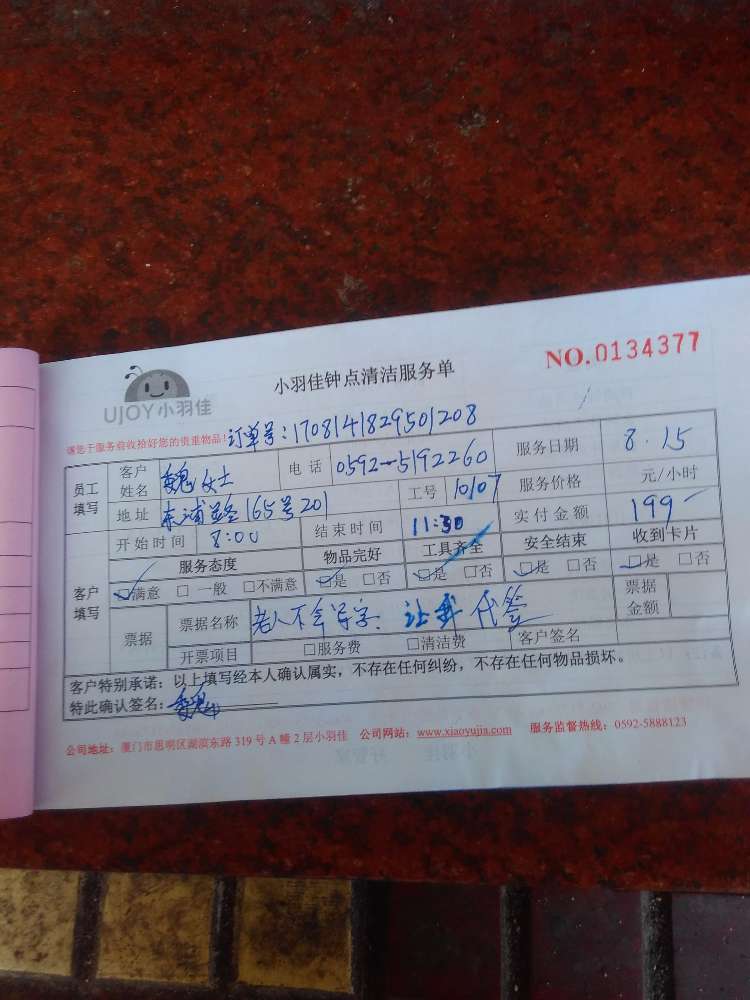 NO.0134377
UJOY小羽佳
小羽佳钟点清洁服务单
请您于服务前收拾好您的贵重物品!
订单号:1708141829501208
员工填写 客户姓名 魏女士 电话 0592-5192260 服务日期 8.15
地址 东浦路165号201 工号 10107 服务价格 元/小时
客户填写 开始时间 8:00 结束时间 11:30 实付金额 199-
服务态度 物品完好 工具齐全 安全结束 收到卡片
☑满意 □一般 □不满意 ☑是 □否 ☑是 □否 ☑是 □否 ☑是 □否
票据 票据名称 老人不会写字、让我代签 票据金额
开票项目 □服务费 □清洁费 客户签名
客户特别承诺:以上填写经本人确认属实,不存在任何纠纷,不存在任何物品损坏。
特此确认签名:魏
公司地址:厦门市思明区湖滨东路 319 号 A 幢 2 层小羽佳 公司网站:www.xiaoyujia.com 服务监督热线:0592-5888123